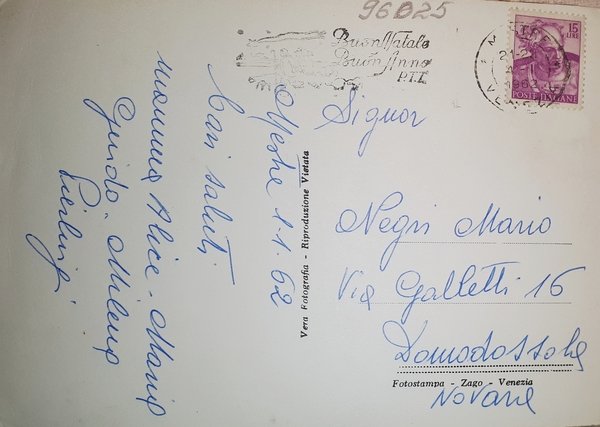 96D25
Buon Natale
Buon Anno
P.T.T.
15
LIRE
POSTE ITALIANE
Mestre 1.1.62
Cari saluti
mamma Alice - Mario
Guido - Milena
Pierluigi
Vera Fotografia - Riproduzione Vietata
Signor
Negri Mario
Via Galletti 16
Domodossola
Fotostampa - Zago - Venezia
Novara